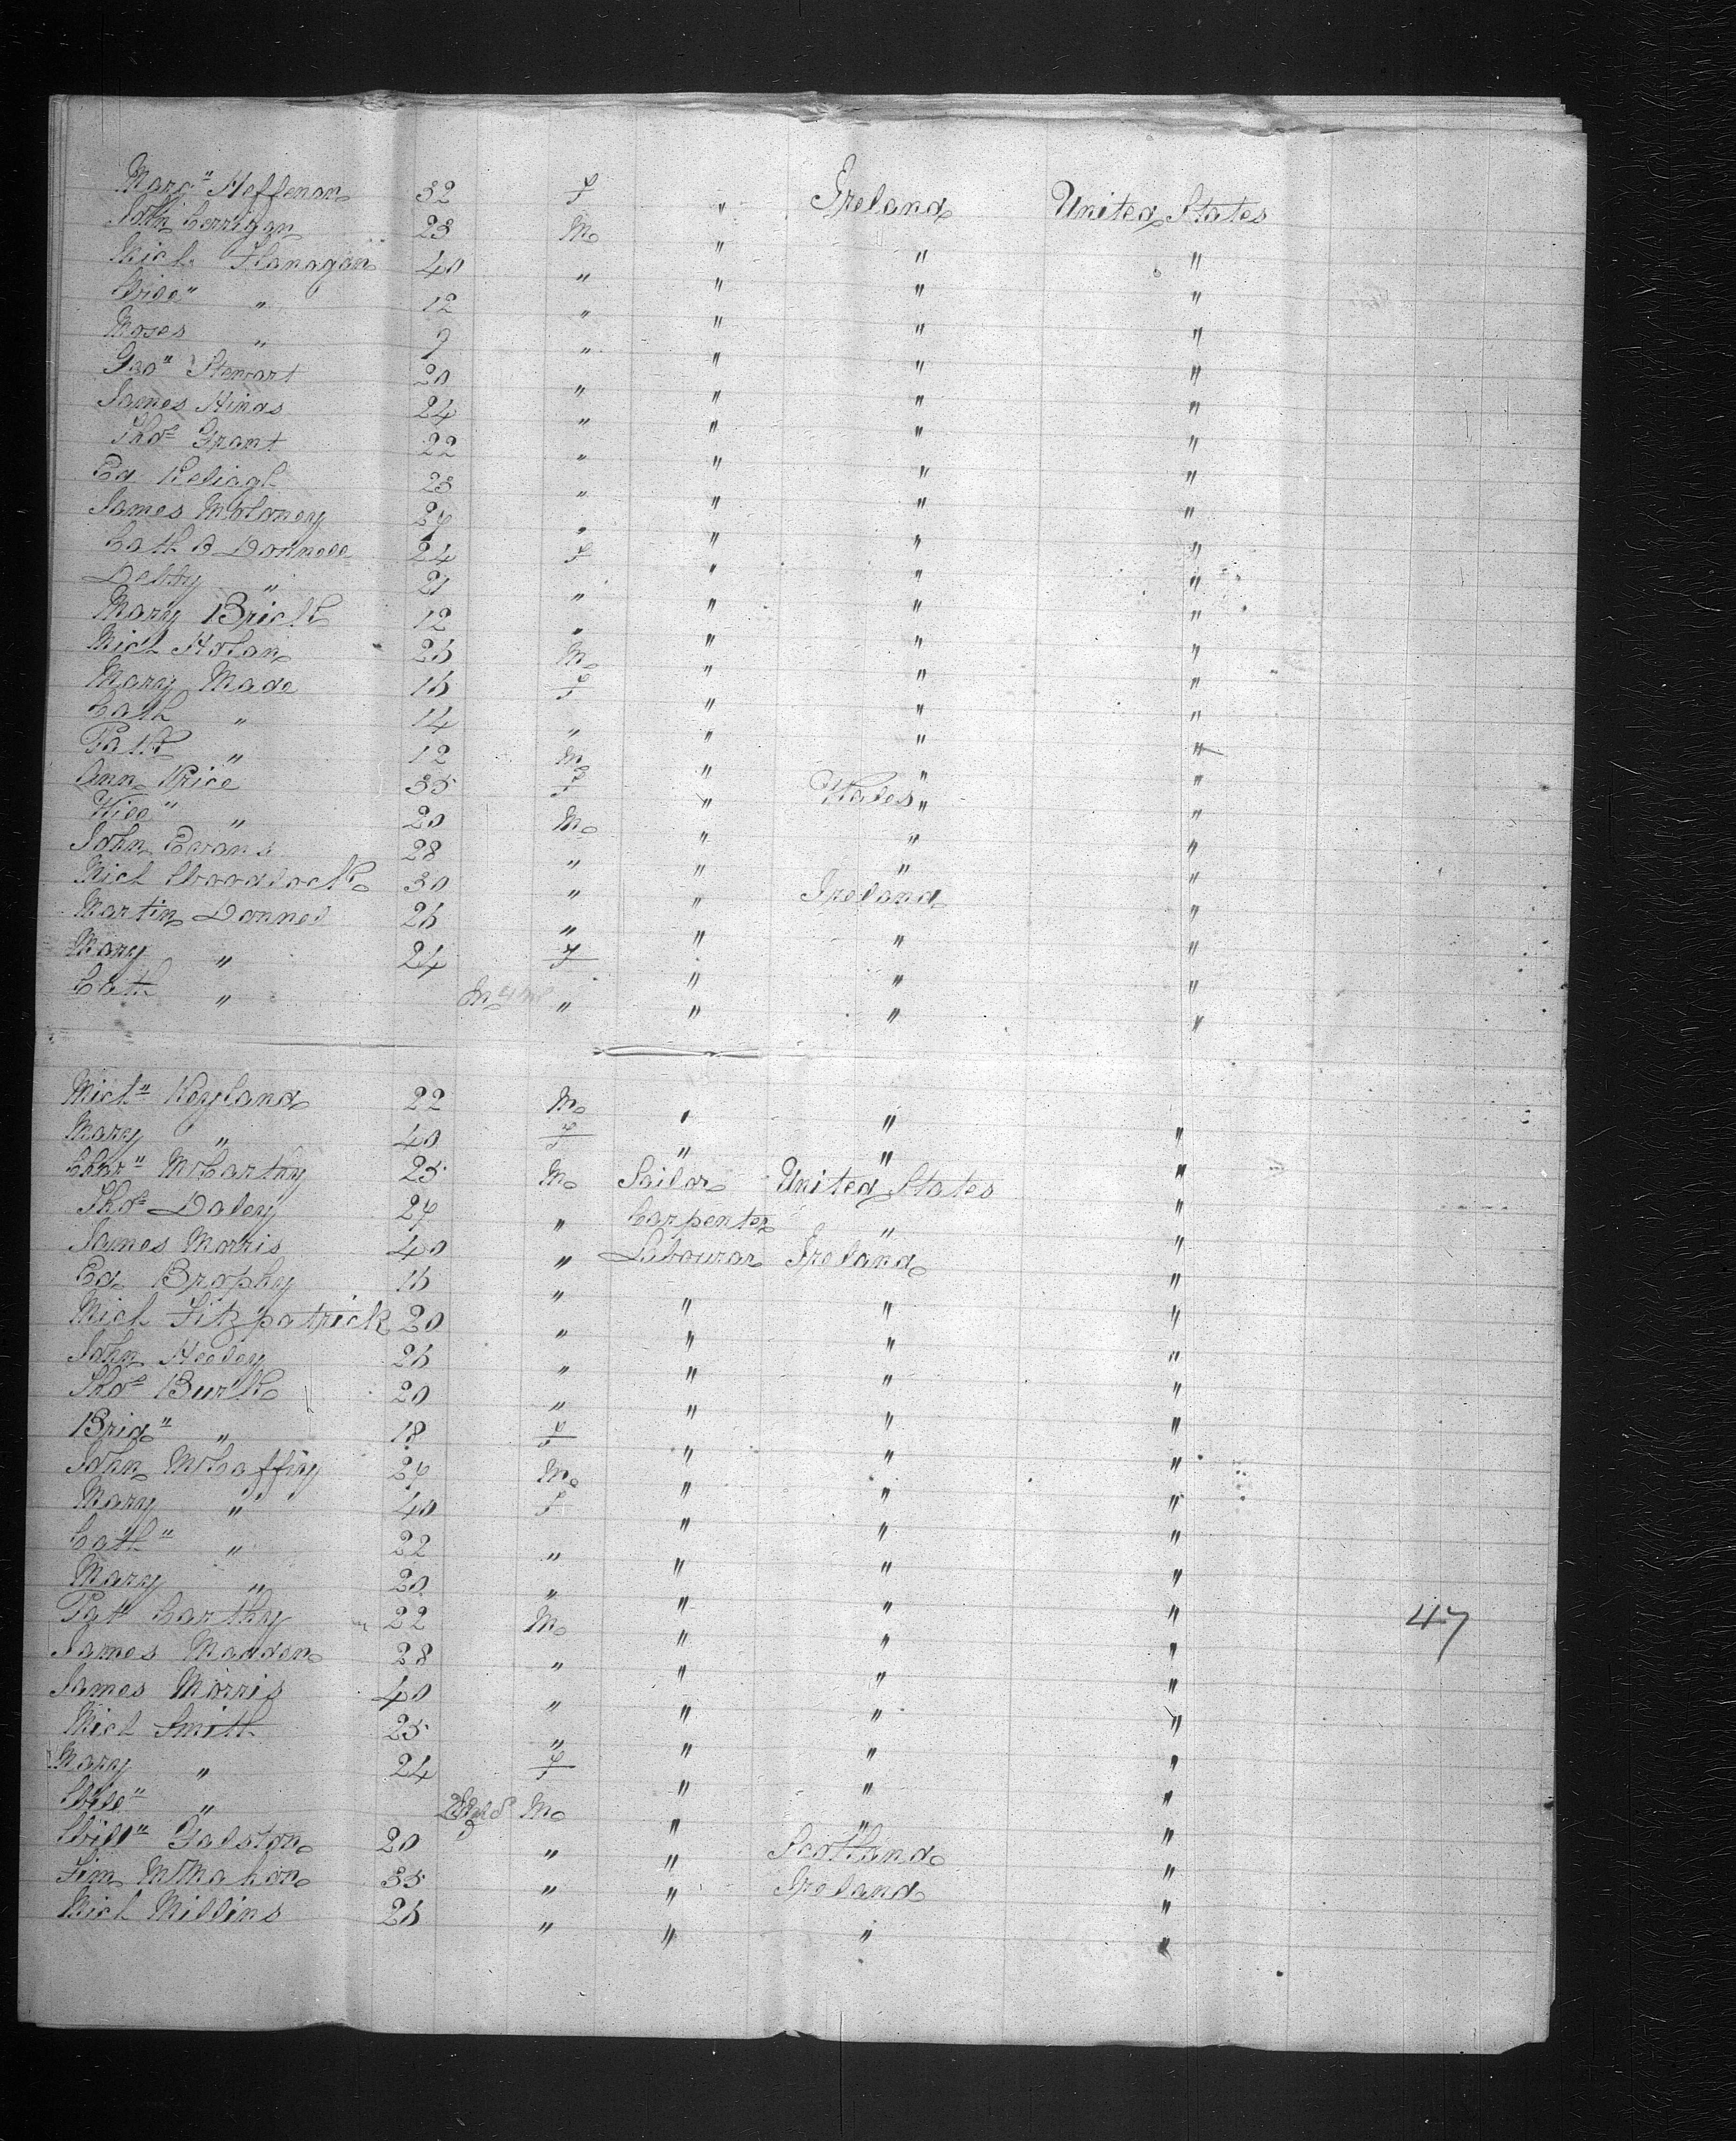 Marg" Heffenan 32 f " Ireland United States
John Kerrigan 23 M " " "
Mich Flanagan 40 " " " "
Will" " 12 " " " "
Moses " 9 " " " "
Geo" Stewart 20 " " " "
James Hinds 24 " " " "
Thos Grant 22 " " " "
Ed 23 " " " "
James Moloney 27 " " " "
Cath O Donnell 24 f " " "
Debby " 21 " " " "
Mary Brick 12 " " " "
Mich Holan 26 M " " "
Mary Made 16 f " " "
Cath " 14 " " " "
Patk " 12 M " " "
Ann Price 35 f " Wales "
Will" " 20 M " " "
John Evans 28 " " " "
Mich Woodlock 30 " " Ireland "
Martin Donnel 26 " " " "
Mary " 24 f " " "
Cath " " " " "
Mich" Keyland 22 M " "
Mary " 40 f " " "
Char" McCarthy 25 M Sailor United States "
Thos Daley 27 " Carpenter " "
James Morris 40 " Labourar Ireland "
Ed Brophy 16 " " " "
Mich Fitzpatrick 20 " " " "
John Heeley 26 " " " "
Thos Burk 20 " " " "
Brid" " 18 f " " "
John McCaffry 27 M " " "
Mary " 40 f " " "
Cath" " 22 " " " "
Mary " 20 " " " "
Patk Carthy 22 M " " " 47
James Madden 28 " " " "
James Morris 40 " " " "
Mich Smith 25 " " " "
Mary " 24 f " " "
Will" " M " " "
Will" Galston 20 " " Scotland "
Tim McMahon 35 " " Ireland "
Mich Millins 26 " " " "